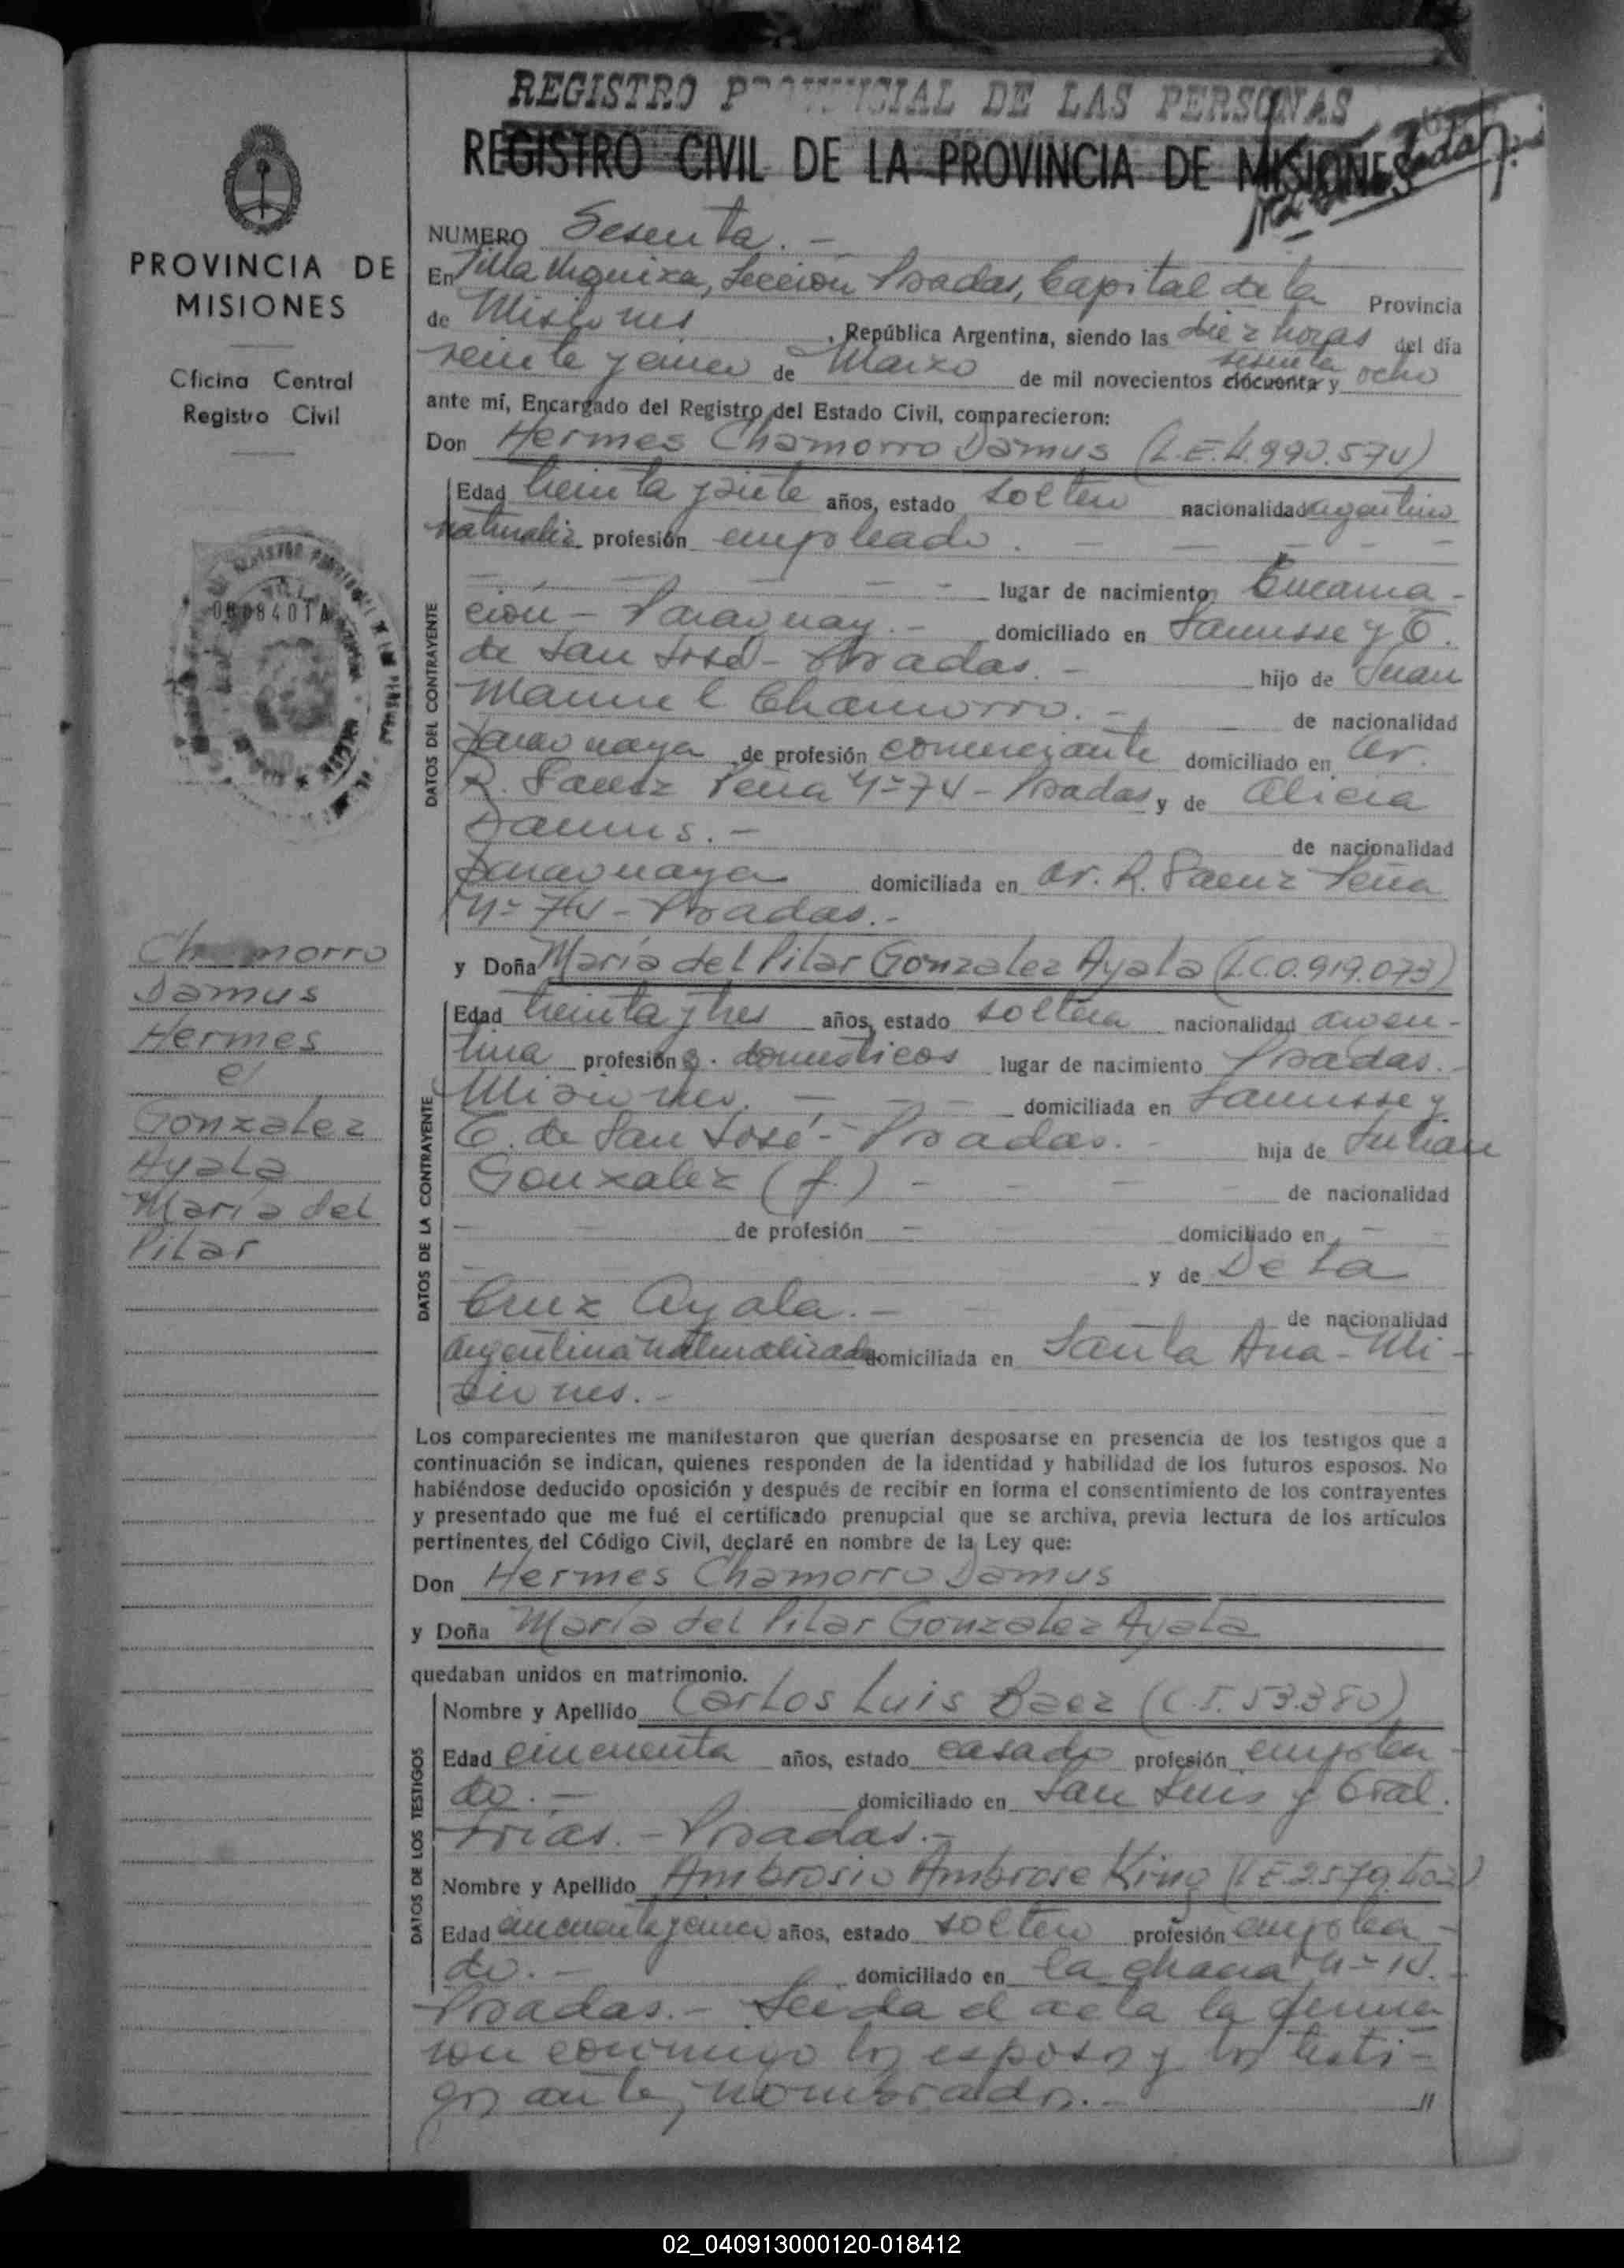 REGISTRO PROVINCIAL DE LAS PERSONAS
REGISTRO CIVIL DE LA PROVINCIA DE MISIONES
PROVINCIA DE
MISIONES
Oficina Central
Registro Civil
Chamorro
Damus
Hermes
e/
Gonzalez
Ayala
María del
Pilar
NUMERO Sesenta.-
En Villa Urquiza, Sección Posadas, Capital de la Provincia
de Misiones, República Argentina, siendo las diez horas del día
veinte y cinco de Marzo de mil novecientos cincuenta sesenta y ocho
ante mí, Encargado del Registro del Estado Civil, comparecieron:
Don Hermes Chamorro Damus (L.E.4.990.574)
DATOS DEL CONTRAYENTE
Edad treinta y siete años, estado soltero nacionalidad argentino
naturaliz. profesión empleado. - - - -
lugar de nacimiento Encarna-
ción - Paraguay.- domiciliado en Lanusse y C.
de San José - Posadas.- hijo de Juan
Manuel Chamorro.- de nacionalidad
paraguaya de profesión comerciante domiciliado en Av.
R. Saenz Peña Nº 74 - Posadas y de Alicia
Damus.- de nacionalidad
paraguaya domiciliada en Av. R. Saenz Peña
Nº 74 - Posadas.-
y Doña María del Pilar Gonzalez Ayala (L.C.0.919.073)
DATOS DE LA CONTRAYENTE
Edad treinta y tres años, estado soltera nacionalidad argen-
tina profesión q. domésticos lugar de nacimiento Posadas.-
Misiones. - - - domiciliada en Lanusse y
C. de San José - Posadas.- hija de Julian
Gonzalez (f.) - - - - de nacionalidad
- de profesión - domiciliado en -
- y de De La
Cruz Ayala.- de nacionalidad
argentina naturalizada domiciliada en Santa Ana - Mi-
siones.-
Los comparecientes me manifestaron que querían desposarse en presencia de los testigos que a
continuación se indican, quienes responden de la identidad y habilidad de los futuros esposos. No
habiéndose deducido oposición y después de recibir en forma el consentimiento de los contrayentes
y presentado que me fué el certificado prenupcial que se archiva, previa lectura de los artículos
pertinentes del Código Civil, declaré en nombre de la Ley que:
Don Hermes Chamorro Damus
y Doña María del Pilar Gonzalez Ayala
quedaban unidos en matrimonio.
DATOS DE LOS TESTIGOS
Nombre y Apellido Carlos Luis Baez (C.I. 53.380)
Edad cincuenta años, estado casado profesión emplea-
do.- domiciliado en San Luis y Gral.
Frias.- Posadas.-
Nombre y Apellido Ambrosio Ambrose King
Edad cincuenta y cinco años, estado soltero profesión emplea-
do.- domiciliado en la chacra Nº 14.
Posadas.- Leida el acta la firma
ron conmigo los esposos y los testi-
gos antes nombrados.- //
02_040913000120-018412